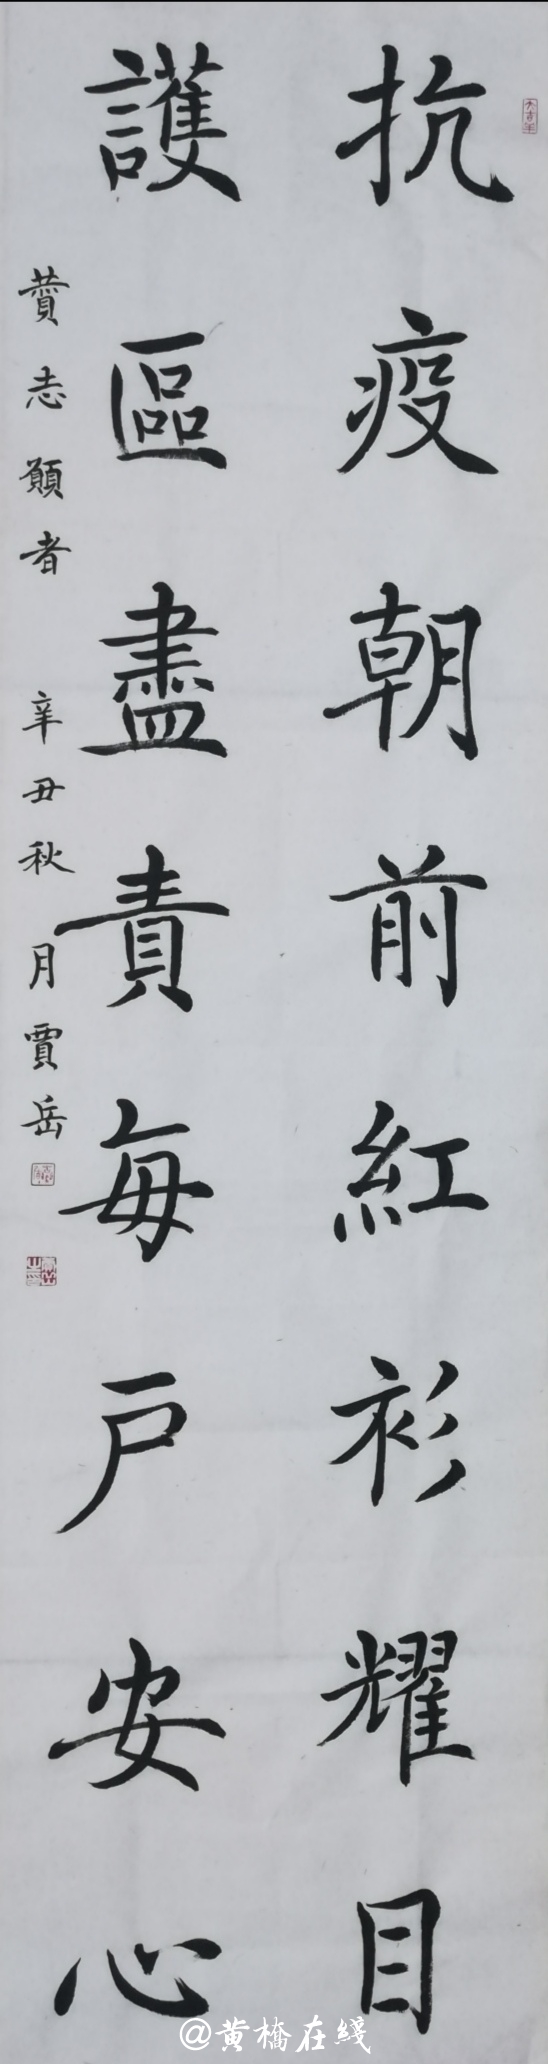 抗疫朝前紅衫耀目
護區盡責每戶安心
贊志願者 辛丑秋月賈岳
@黄橋在綫